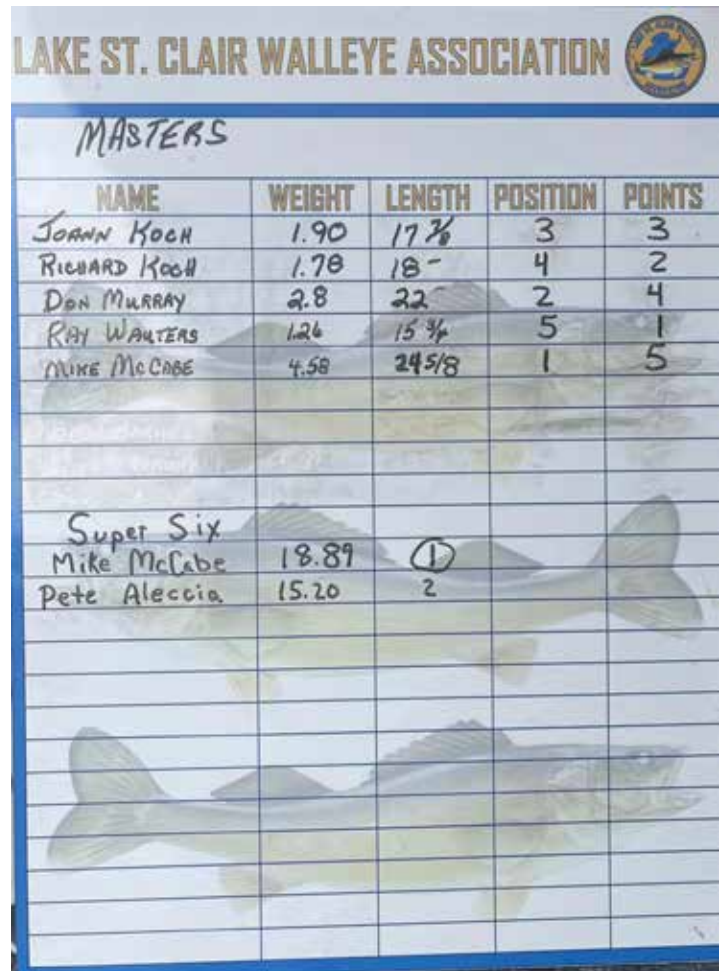 LAKE ST. CLAIR WALLEYE ASSOCIATION
MASTERS
NAME WEIGHT LENGTH POSITION POINTS
JOANN KOCH 1.90 17 7/8 3 3
RICHARD KOCH 1.78 18 - 4 2
DON MURRAY 2.8 22 2 4
RAY WALTERS 1.26 15 3/4 5 1
MIKE McCABE 4.58 24 5/8 1 5
Super Six
Mike McCabe 18.89 1
Pete Aleccia 15.20 2